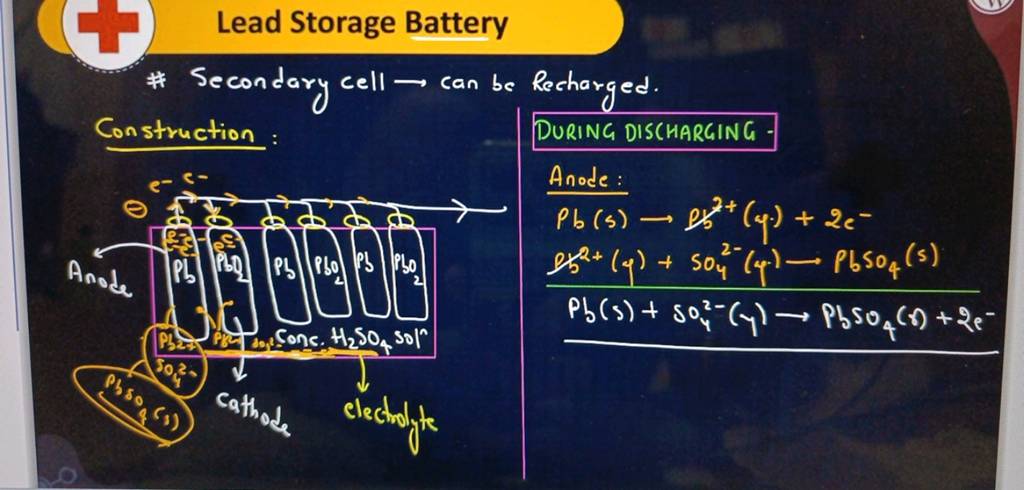 Lead Storage Battery
# Secondary cell → can be Recharged.
Construction :
e⁻ e⁻
⊖
Anode
Pb PbO₂ Pb PbO₂ Pb PbO₂
Conc. H₂SO₄ solⁿ
Pb²⁺
SO₄²⁻
PbSO₄(s)
Cathode
electrolyte
DURING DISCHARGING -
Anode :
Pb(s) → Pb²⁺(y) + 2e⁻
Pb²⁺(y) + SO₄²⁻(y) → PbSO₄(s)
Pb(s) + SO₄²⁻(y) → PbSO₄(s) + 2e⁻